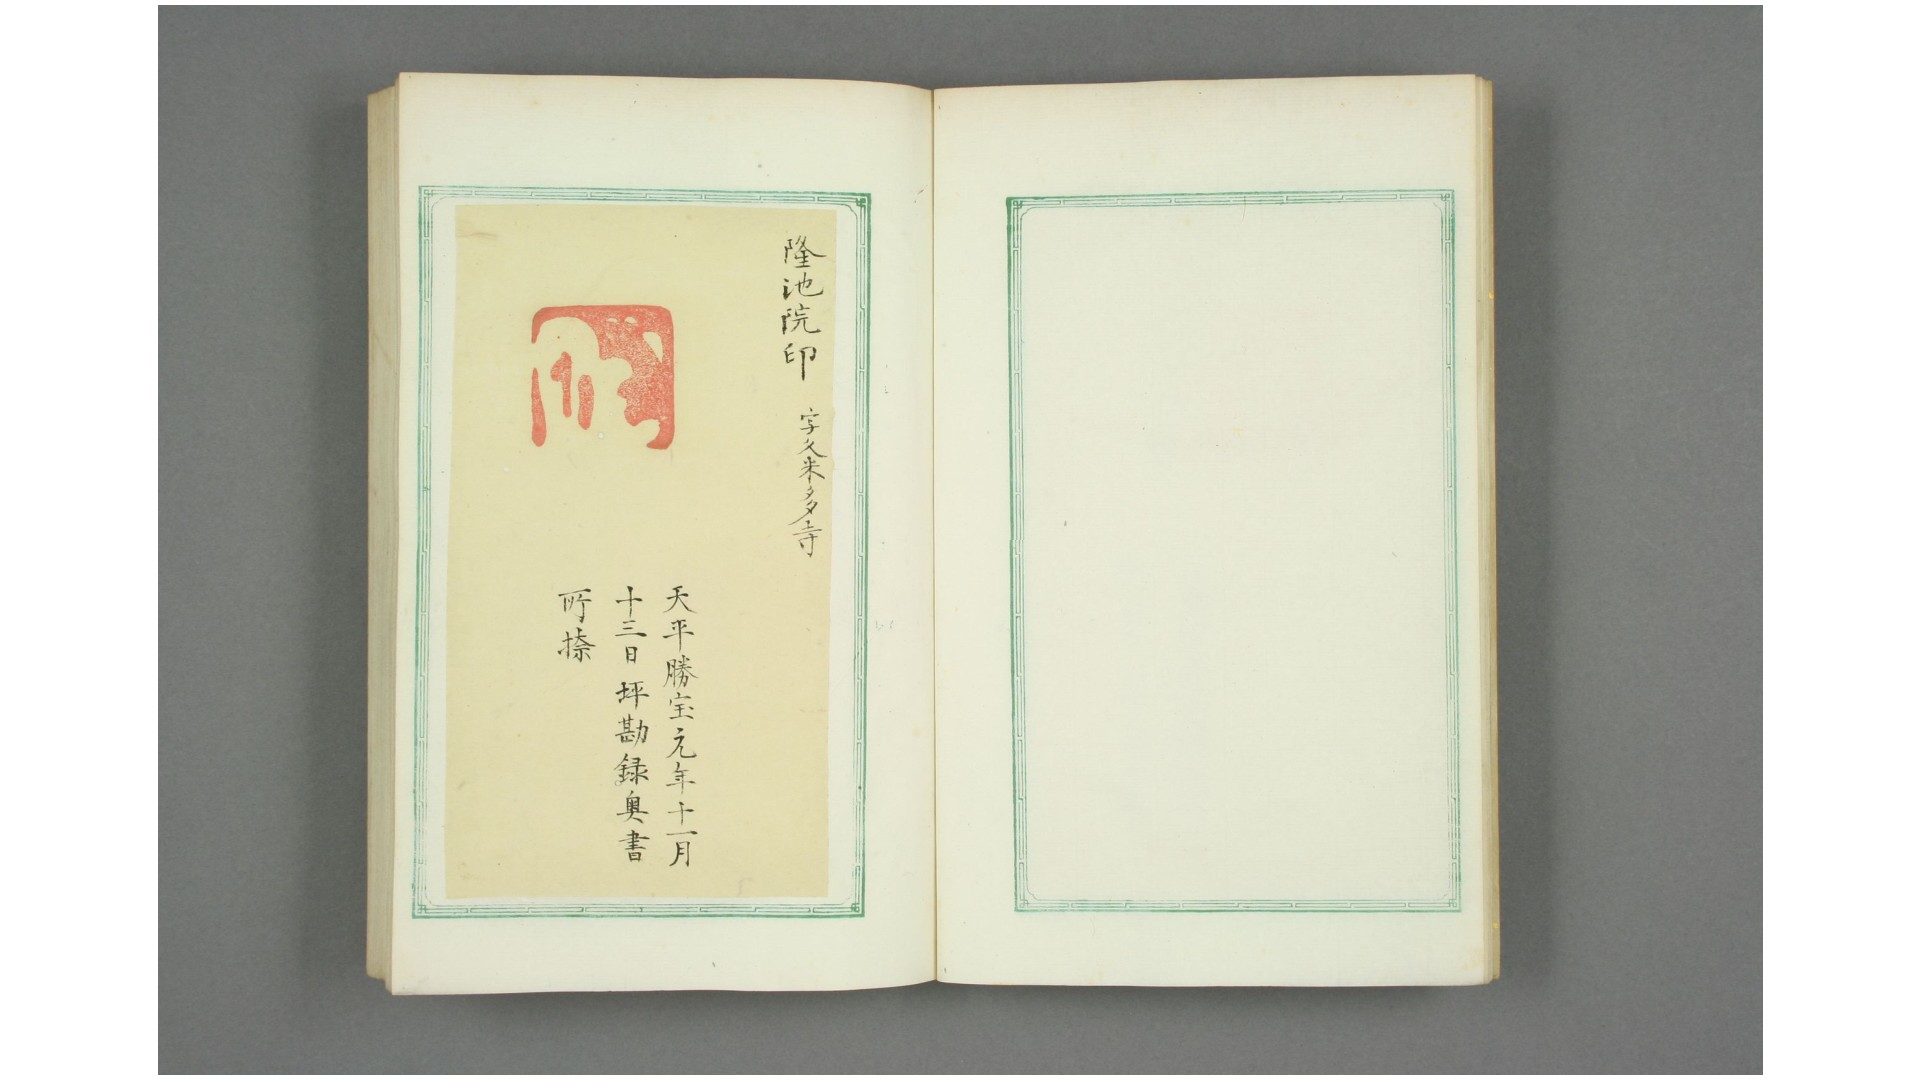 隆池院印 字久米多寺
天平勝宝元年十一月
十三日坪勘録奥書
所捺